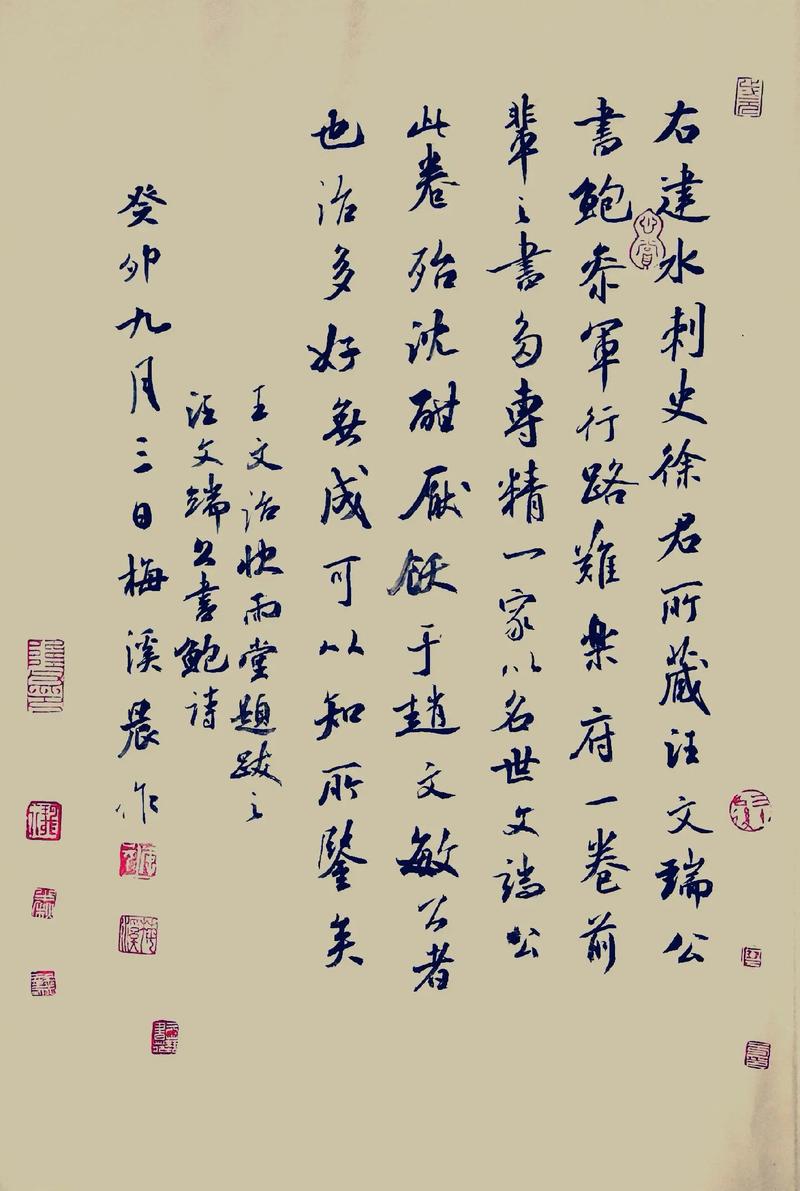 右建水刺史徐君所藏汪文瑞公
書鮑参軍行路難樂府一卷前
輩之書多專精一家以名世文端公
此卷殆沈酣厭飫于趙文敏公者
也治多好無成可以知所鑒矣
王文治快雨堂題跋之
汪文端公書鮑詩
癸卯九月三日梅溪晨作
梅溪